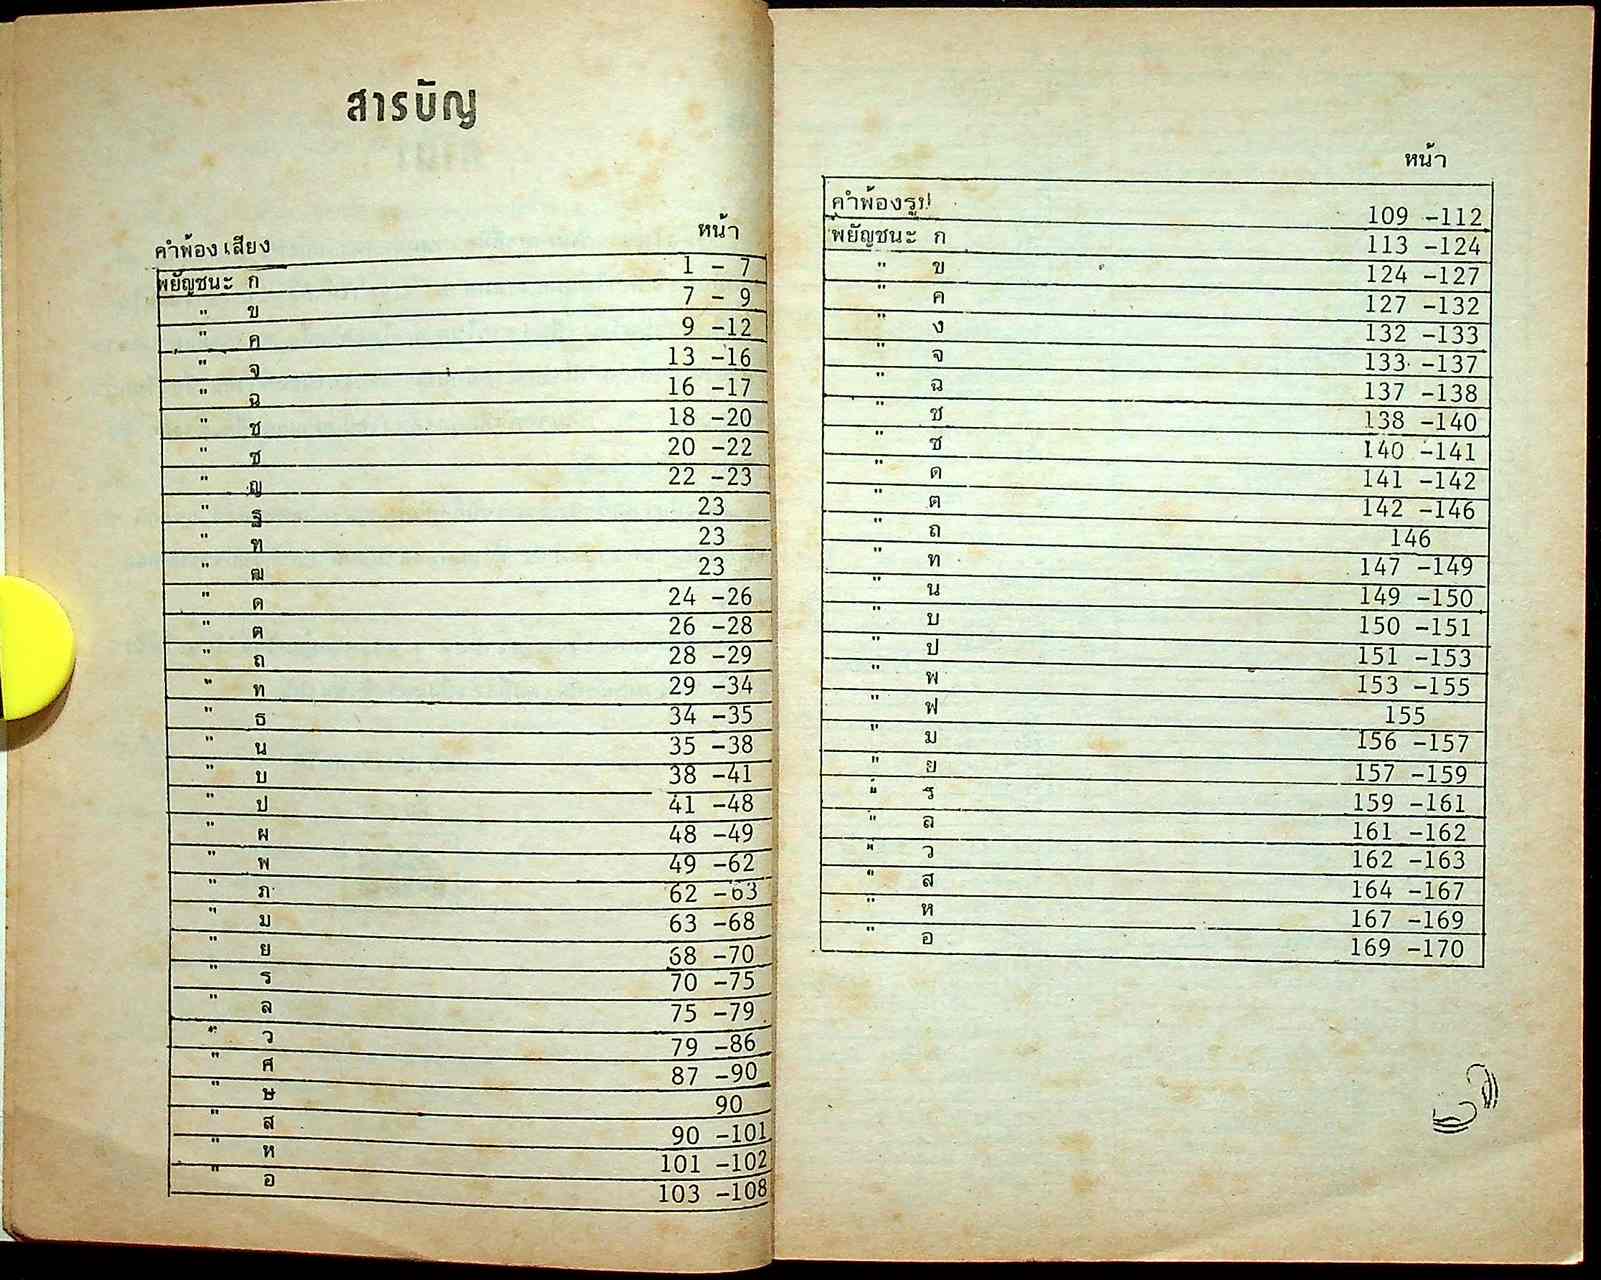 สารบัญ
หน้า
คำพ้องเสียง
พยัญชนะ ก 1 - 7
" ข 7 - 9
" ค 9 -12
" จ 13 -16
" ฉ 16 -17
" ช 18 -20
" ซ 20 -22
" ญ 22 -23
" ฐ 23
" ฑ 23
" ฒ 23
" ด 24 -26
" ต 26 -28
" ถ 28 -29
" ท 29 -34
" ธ 34 -35
" น 35 -38
" บ 38 -41
" ป 41 -48
" ผ 48 -49
" พ 49 -62
" ภ 62 -63
" ม 63 -68
" ย 68 -70
" ร 70 -75
" ล 75 -79
" ว 79 -86
" ศ 87 -90
" ษ 90
" ส 90 -101
" ห 101 -102
" อ 103 -108
หน้า
คำพ้องรูป 109 -112
พยัญชนะ ก 113 -124
" ข 124 -127
" ค 127 -132
" ง 132 -133
" จ 133 -137
" ฉ 137 -138
" ช 138 -140
" ซ 140 -141
" ด 141 -142
" ต 142 -146
" ถ 146
" ท 147 -149
" น 149 -150
" บ 150 -151
" ป 151 -153
" พ 153 -155
" ฟ 155
" ม 156 -157
" ย 157 -159
" ร 159 -161
" ล 161 -162
" ว 162 -163
" ส 164 -167
" ห 167 -169
" อ 169 -170